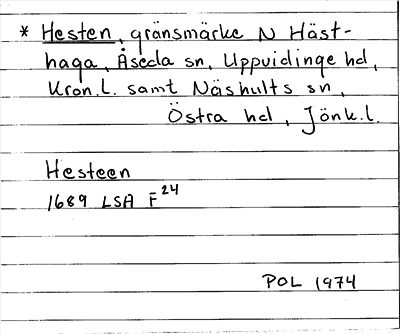 * Hesten, gränsmärke N Häst-
haga, Åseda sn, Uppvidinge hd,
Kron.l. samt Näshults sn,
Östra hd, Jönk.l.
Hesteen
1689 LSA F 24
POL 1974